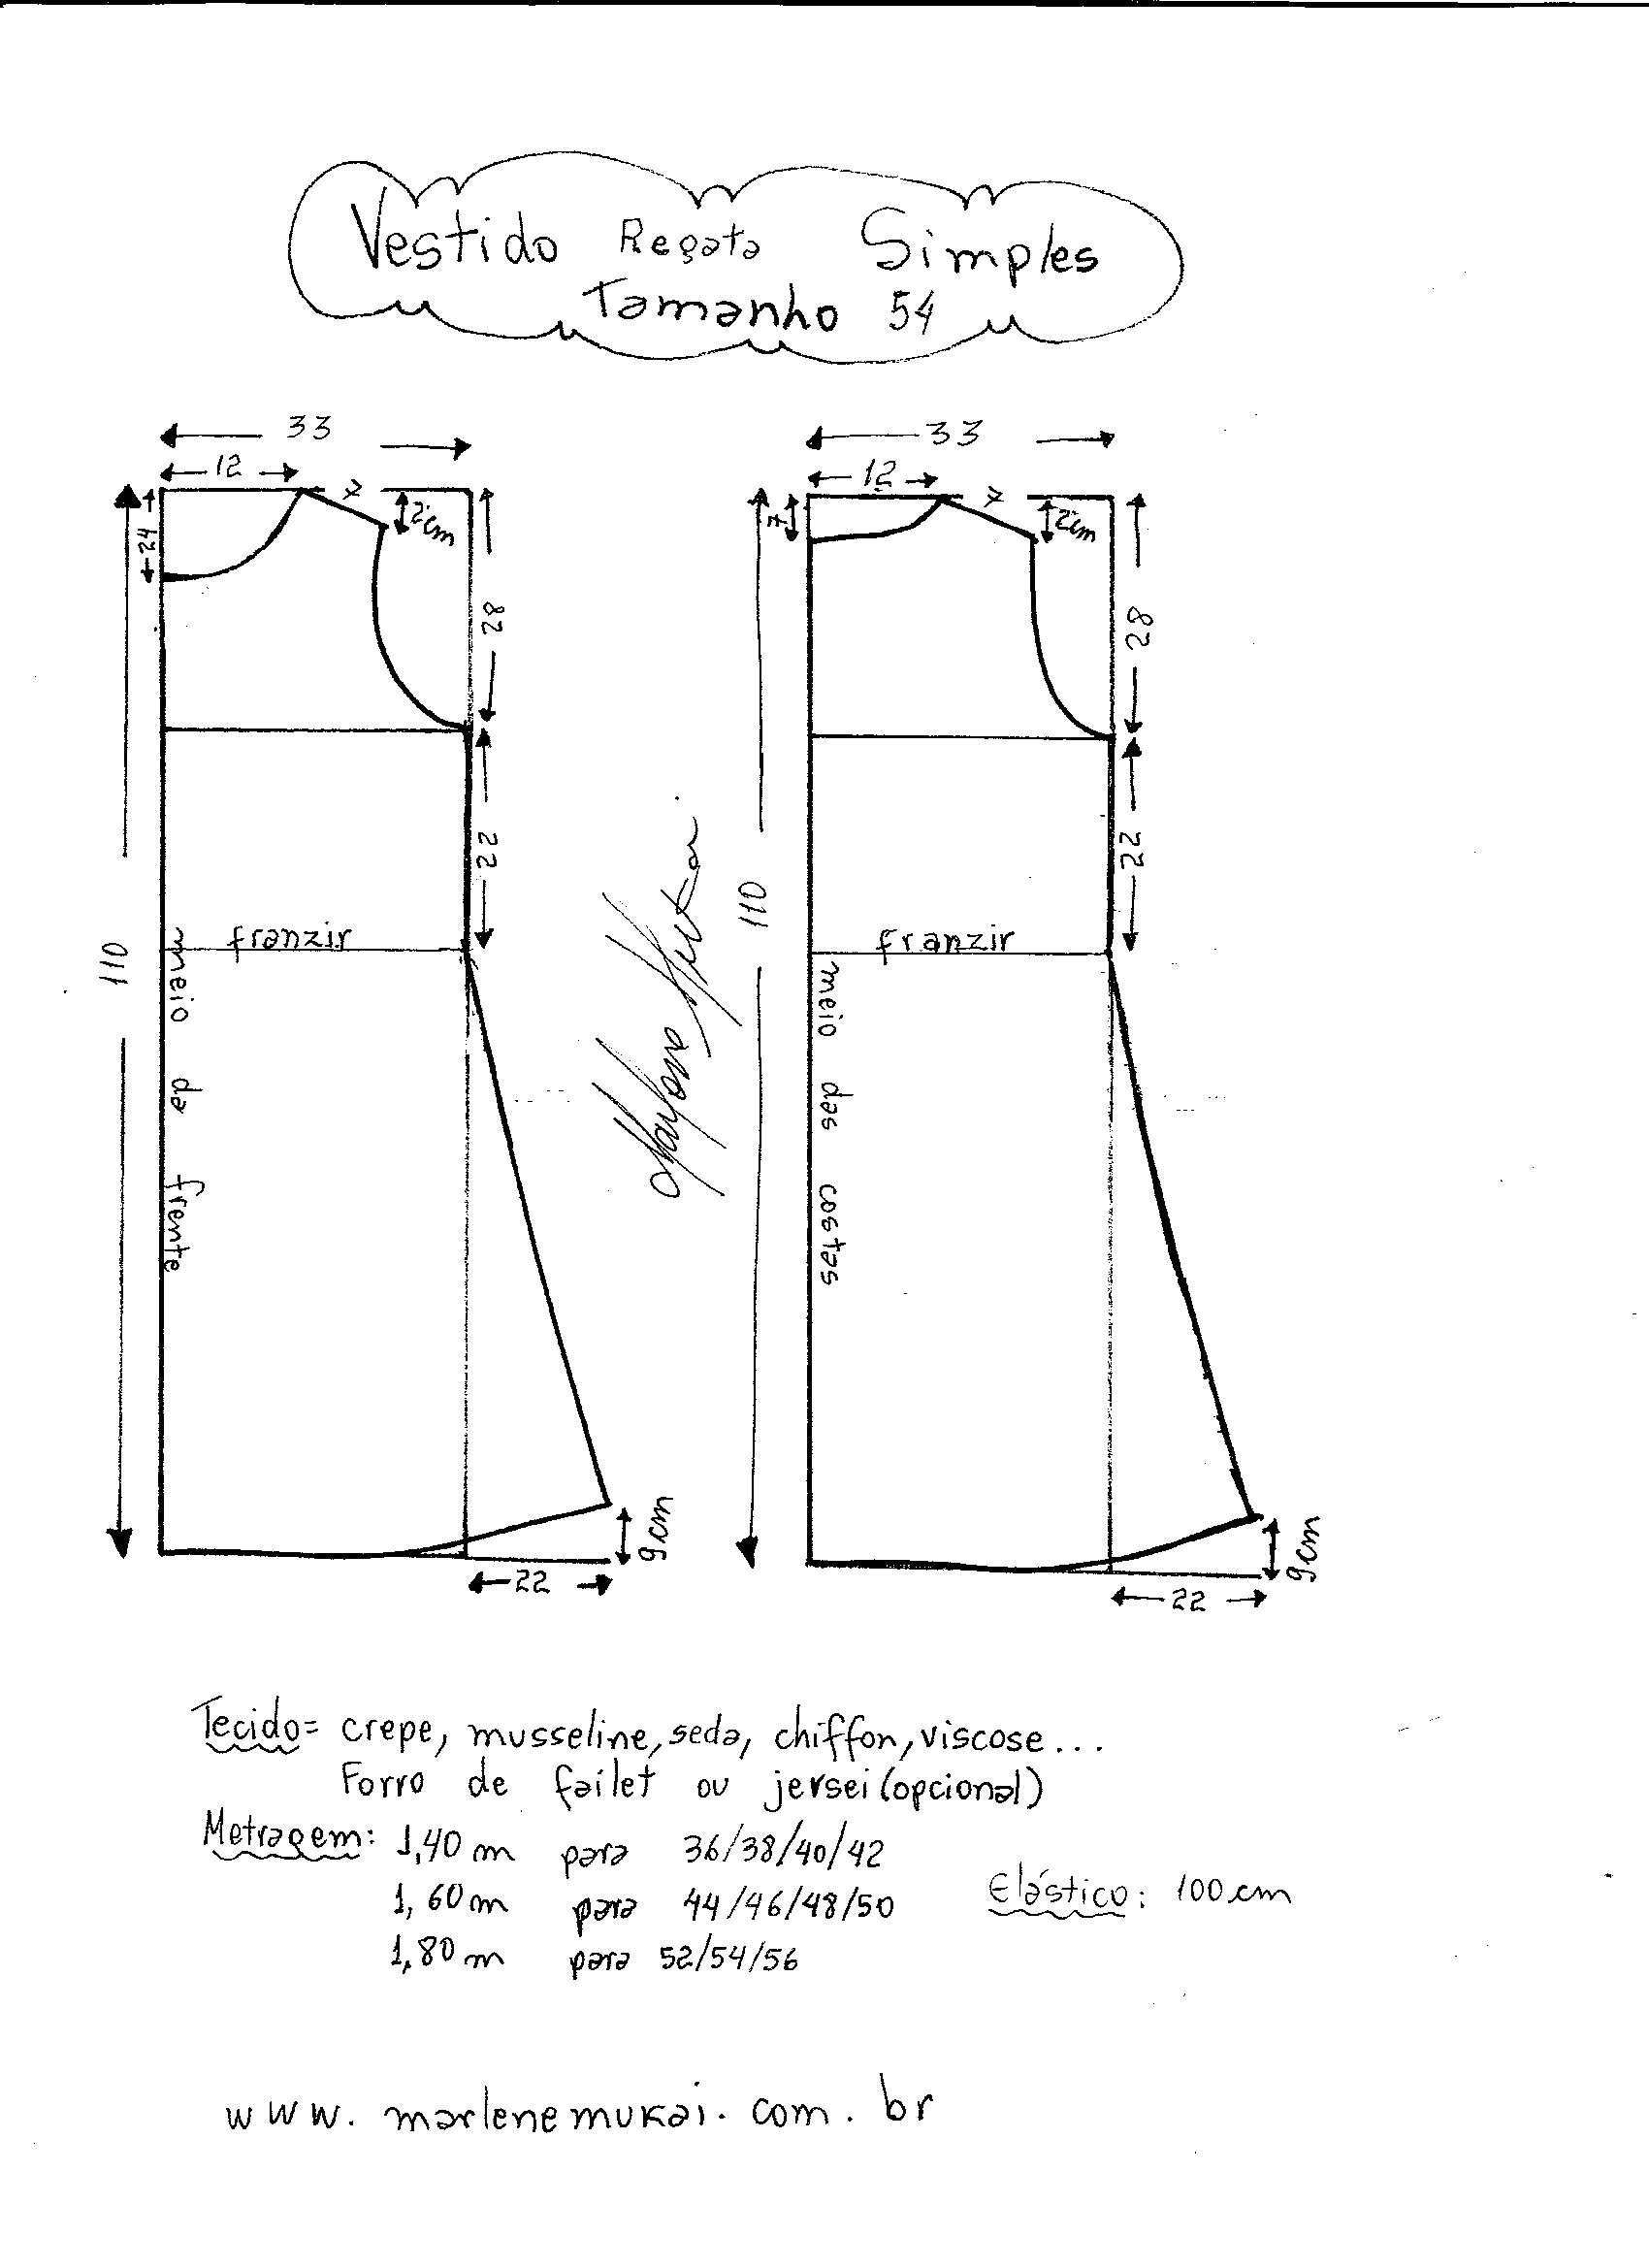 Vestido Regata Simples
Tamanho 54
33
12
7
2cm
24
28
22
110
franzir
meio da frente
9cm
22
33
12
7
7
2cm
28
22
110
franzir
meio das costas
9cm
22
Tecido= crepe, musseline, seda, chiffon, viscose...
Forro de failet ou jersei (opcional)
Metragem: 1,40 m para 36/38/40/42
1,60 m para 44/46/48/50
Elástico: 100 cm
1,80 m para 52/54/56
www.marlenemukai.com.br